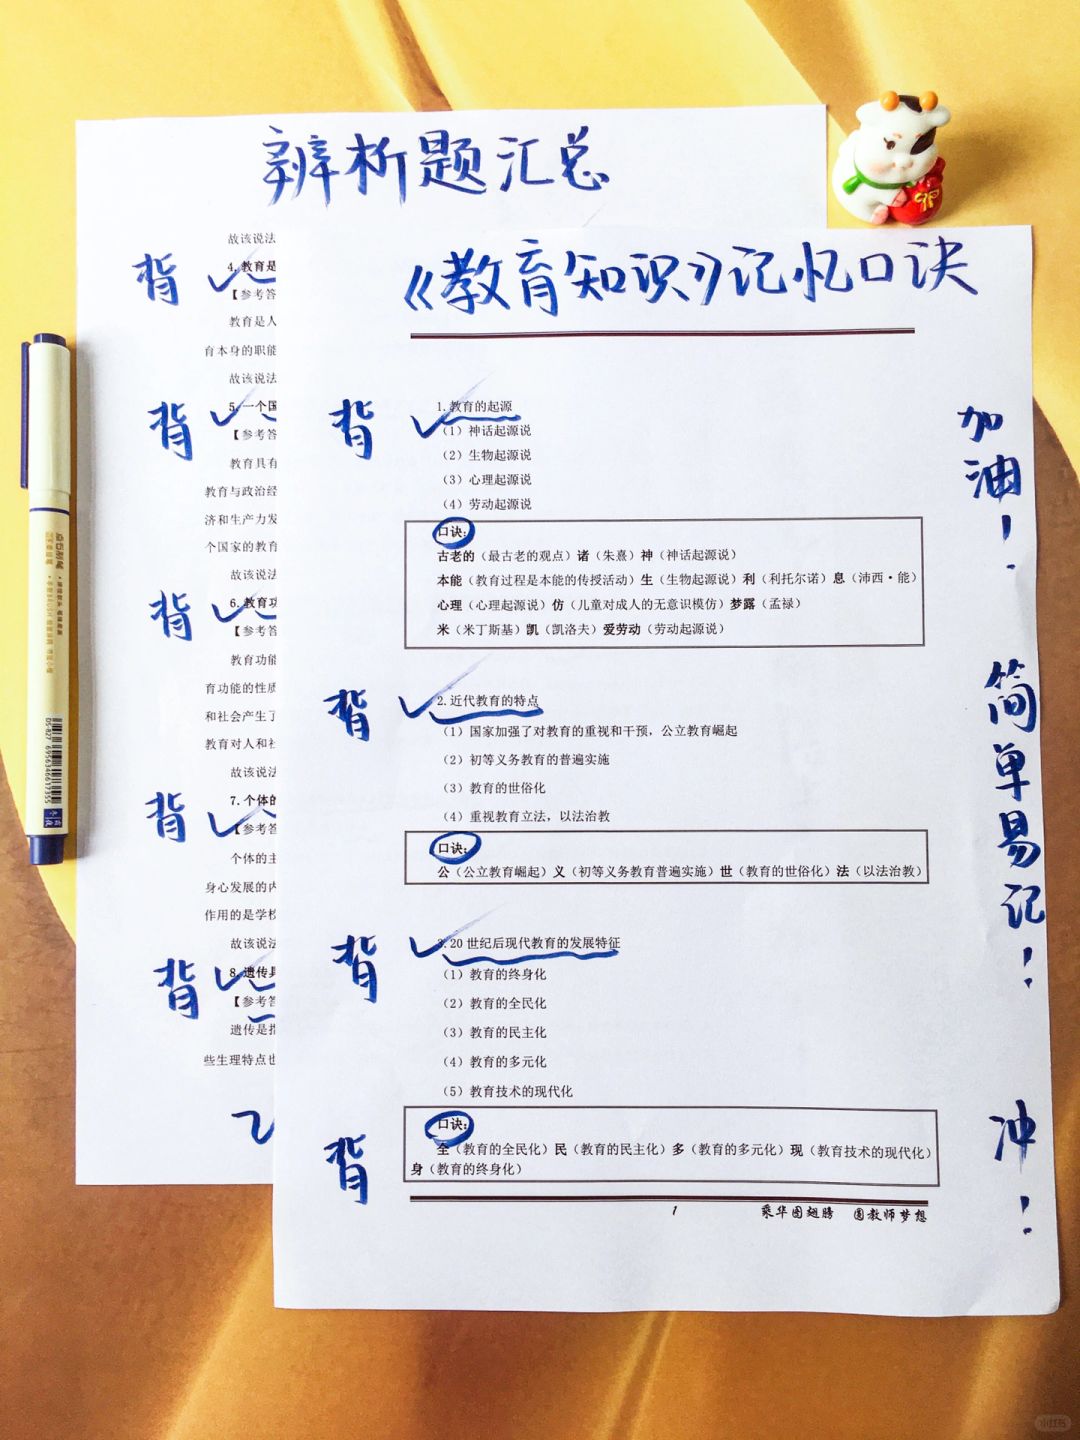 辨析题汇总
故该说法
背
4.教育是
【参考答
教育是人
育本身的职能
故该说法
背
5.一个国
【参考答
教育具有
教育与政治经
济和生产力发
个国家的教育
故该说法
背
6.教育功
【参考答
教育功能
育功能的性质
和社会产生了
教育对人和社
故该说法
背
7.个体的
【参考答
个体的主
身心发展的内
作用的是学校
故该说法
背
8.遗传具
【参考答
遗传是指
些生理特点也
《教育知识》记忆口诀
背
1.教育的起源
（1）神话起源说
（2）生物起源说
（3）心理起源说
（4）劳动起源说
口诀：
古老的（最古老的观点）诸（朱熹）神（神话起源说）
本能（教育过程是本能的传授活动）生（生物起源说）利（利托尔诺）息（沛西·能）
心理（心理起源说）仿（儿童对成人的无意识模仿）梦露（孟禄）
米（米丁斯基）凯（凯洛夫）爱劳动（劳动起源说）
背
2.近代教育的特点
（1）国家加强了对教育的重视和干预，公立教育崛起
（2）初等义务教育的普遍实施
（3）教育的世俗化
（4）重视教育立法，以法治教
口诀：
公（公立教育崛起）义（初等义务教育普遍实施）世（教育的世俗化）法（以法治教）
背
3.20世纪后现代教育的发展特征
（1）教育的终身化
（2）教育的全民化
（3）教育的民主化
（4）教育的多元化
（5）教育技术的现代化
背
口诀：
全（教育的全民化）民（教育的民主化）多（教育的多元化）现（教育技术的现代化）
身（教育的终身化）
1 乘华图翅膀 圆教师梦想
加油！
简单易记！
冲！
DS-827 6956346617355
小红书